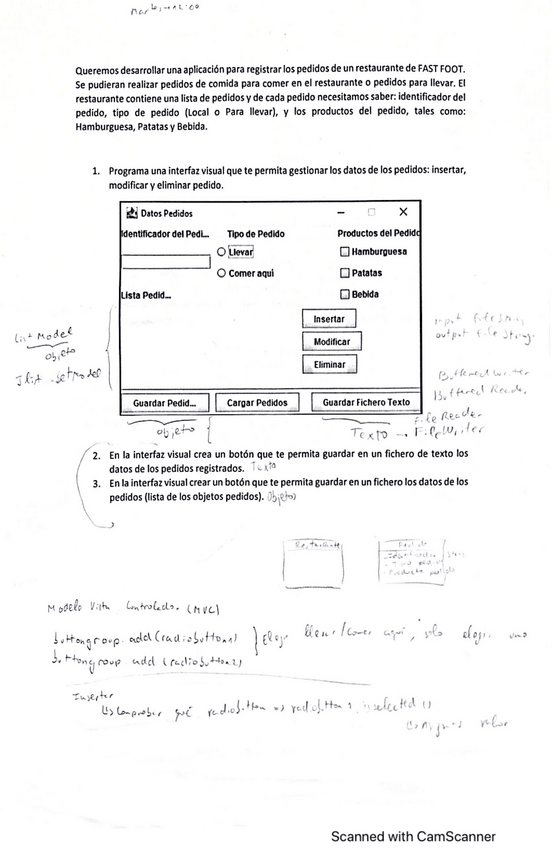 Queremos desarrollar una aplicación para registrar los pedidos de un restaurante de FAST FOOT.
Se pudieran realizar pedidos de comida para comer en el restaurante o pedidos para llevar. El
restaurante contiene una lista de pedidos y de cada pedido necesitamos saber: identificador del
pedido, tipo de pedido (Local o Para llevar), y los productos del pedido, tales como:
Hamburguesa, Patatas y Bebida.
1. Programa una interfaz visual que te permita gestionar los datos de los pedidos: insertar,
modificar y eliminar pedido.
Datos Pedidos
Identificador del Pedi... Tipo de Pedido Productos del Pedido
Llevar Hamburguesa
Comer aqui Patatas
Lista Pedid... Bebida
Insertar
Modificar
Eliminar
Guardar Pedid... Cargar Pedidos Guardar Fichero Texto
List Model
objeto
Jlist .setModel
input FileString
output File String
Buffered Writer
Buffered Reader
File Reader
objeto Texto → FileWriter
2. En la interfaz visual crea un botón que te permita guardar en un fichero de texto los
datos de los pedidos registrados. Texto
3. En la interfaz visual crear un botón que te permita guardar en un fichero los datos de los
pedidos (lista de los objetos pedidos). (objeto)
Restaurante Pedido
Modelo Vista Controlador (MVC)
buttongroup. add (radiobutton1) } Elegir llevar/comer aquí, solo elegir uno
buttongroup add (radiobutton2)
Insertar
Comprobar qué radiobutton => radiobutton 1. isselected ()
valor
Scanned with CamScanner